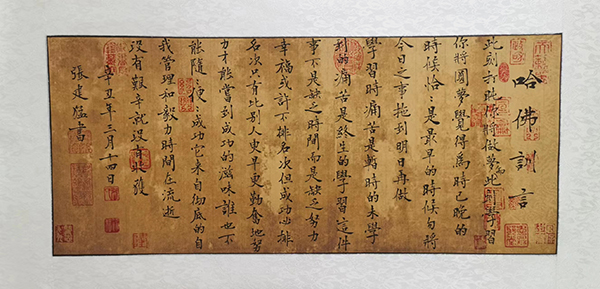 哈佛訓言
此刻打盹你將做夢此刻學習
你將圓夢覺得為時已晚的
時候恰〻是最早的時候勿將
今日之事拖到明日再做
學習時痛苦是暫時的未學
到的痛苦是終生的學習這件
事不是缺乏時間而是缺乏努力
幸福或許不排名次但成功必排
名次只有比別人更早更勤奮地努
力才能嘗到成功的滋味誰也不
能隨〻便〻成功它來自徹底的自
我管理和毅力時間在流逝
沒有艱辛就沒有收獲
辛丑年三月十四日
張建猛書